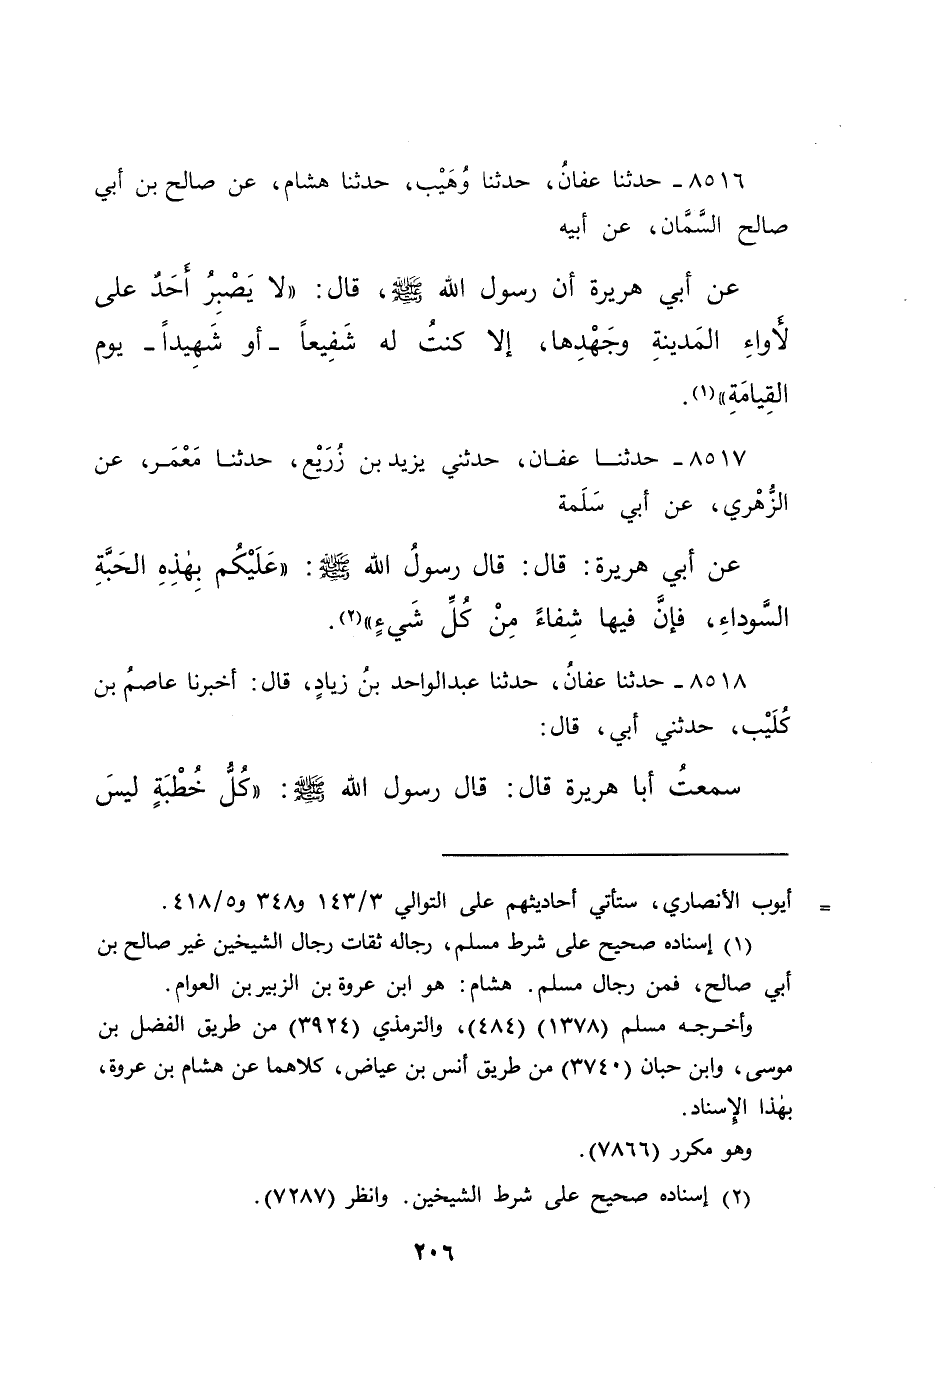 ٨٥١٦ـ حدثنا عفانُ، حدثنا وُهَيْب، حدثنا هشام، عن صالح بن أبي
صالح السَّمَّان، عن أبيه
عن أبي هريرة أن رسول الله ﷺ، قال: «لا يَصْبِرُ أَحَدٌ على
لأْواءِ المَدينةِ وجَهْدِها، إلا كنتُ له شَفِيعاً ـ أو شَهِيداً ـ يوم
القِيامَةِ»(١).
٨٥١٧ـ حدثنا عفان، حدثني يزيد بن زُرَيْع، حدثنا مَعْمَر، عن
الزُّهْري، عن أبي سَلَمة
عن أبي هريرة: قال: قال رسولُ الله ﷺ: «عَلَيْكُم بِهٰذِهِ الحَبَّةِ
السَّوداءِ، فإنَّ فيها شِفاءً مِنْ كُلِّ شَيءٍ»(٢).
٨٥١٨ـ حدثنا عفانُ، حدثنا عبدالواحد بنُ زيادٍ، قال: أخبرنا عاصمُ بن
كُلَيْب، حدثني أبي، قال:
سمعتُ أبا هريرة قال: قال رسول الله ﷺ: «كُلُّ خُطْبَةٍ ليسَ
= أيوب الأنصاري، ستأتي أحاديثهم على التوالي ١٤٣/٣ و٣٤٨ و٤١٨/٥.
(١) إسناده صحيح على شرط مسلم، رجاله ثقات رجال الشيخين غير صالح بن
أبي صالح، فمن رجال مسلم. هشام: هو ابن عروة بن الزبير بن العوام.
وأخرجه مسلم (١٣٧٨) (٤٨٤)، والترمذي (٣٩٢٤) من طريق الفضل بن
موسى، وابن حبان (٣٧٤٠) من طريق أنس بن عياض، كلاهما عن هشام بن عروة،
بهٰذا الإِسناد.
وهو مكرر (٧٨٦٦).
(٢) إسناده صحيح على شرط الشيخين. وانظر (٧٢٨٧).
٢٠٦